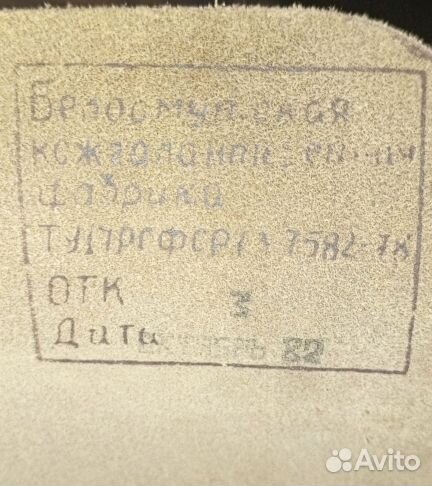 Белоомутская
кожгалантерейная
фабрика
ТУ 7582-78
ОТК 3
Дата 82
Avito